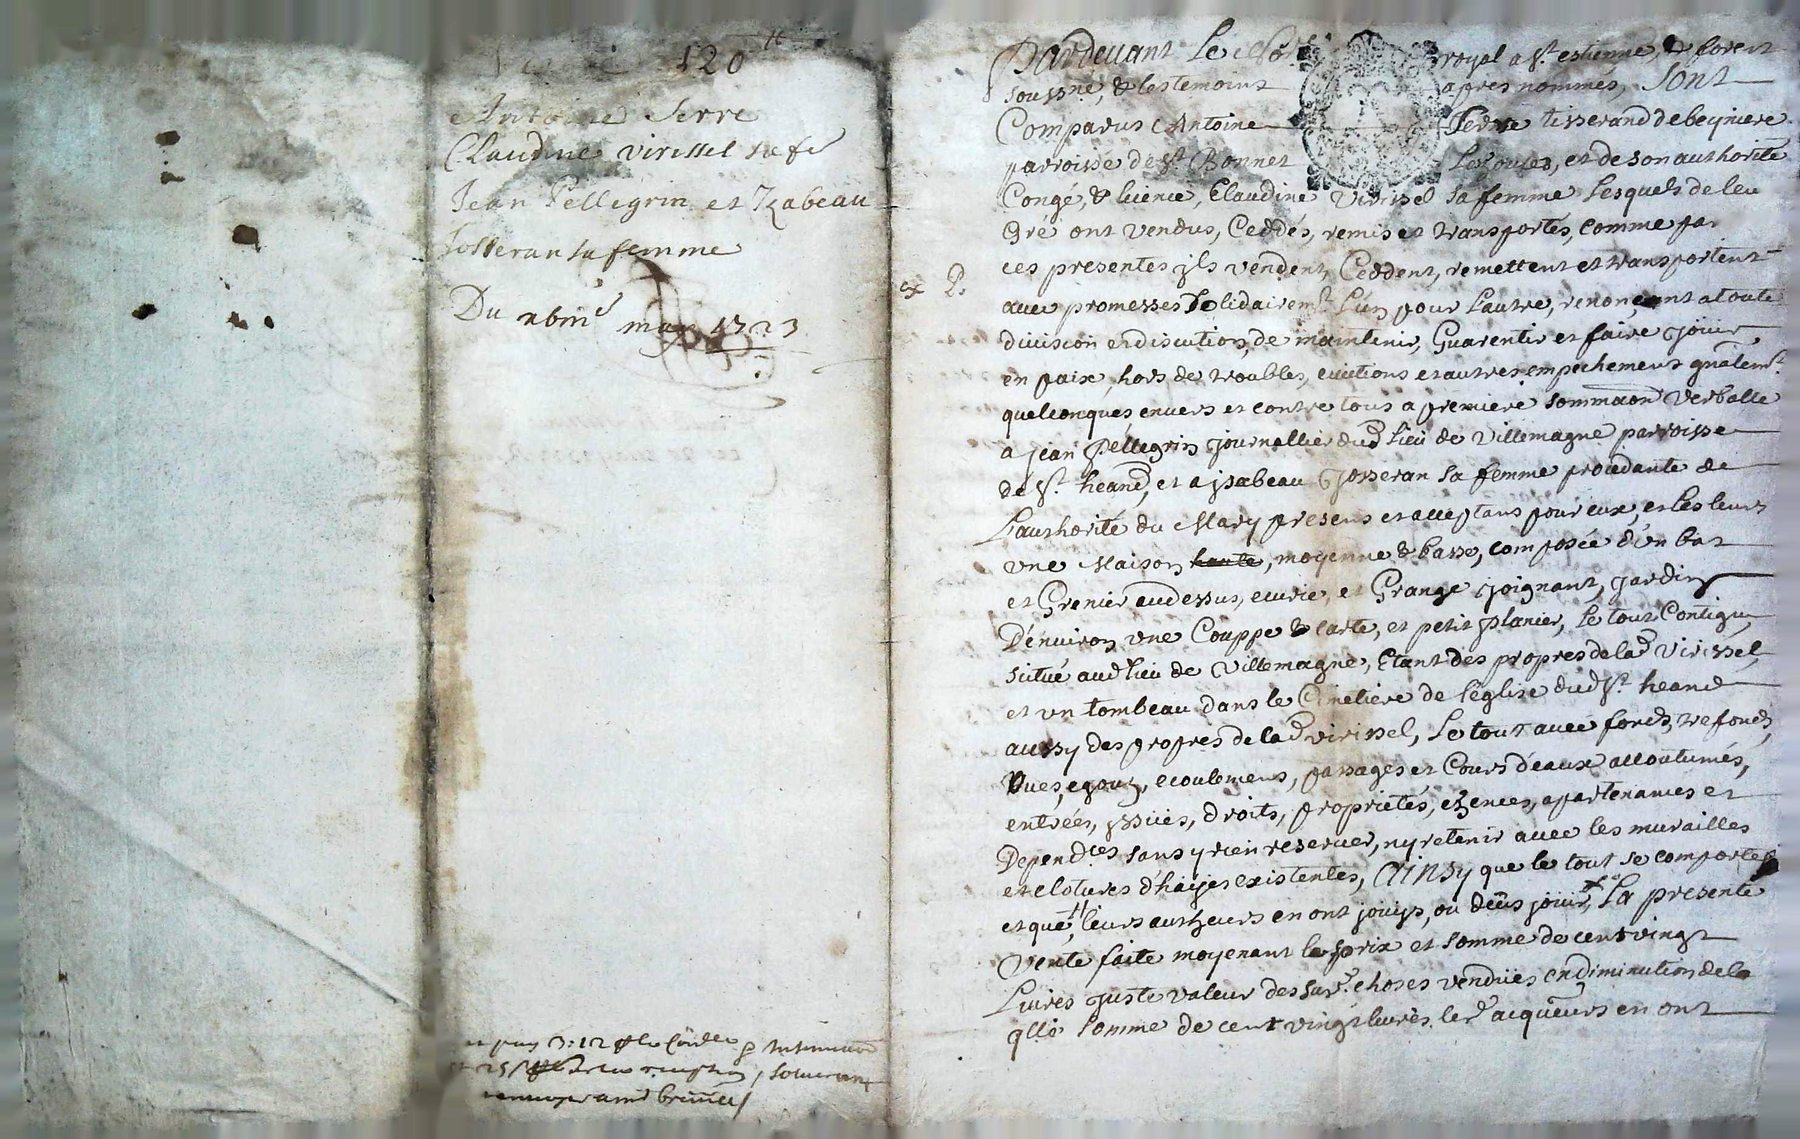 120 tt
Antoine Serre
Claudine virissel sa fe
Jean Pellegrin et Izabeau
Josseran sa femme
Du xbme may 1723
Pardevant Le No.re royal a St. estienne, & forest
soussne, & les temoins apres nommés, Sont
Comparus Antoine Serre tisserand de beyniere
parroisse de St. Bonnet Les oules, et de son authorité
Congé, & licence, Claudine Virissel sa femme Lesquels de leu
Gré ont vendus, Ceddés, remis et transportés, comme par
ces presentes jls vendent, Ceddent, remettent et transportent
avec promesses Solidairemt. L'un pour Lautre, renonçant a toute
division et discution, de maintenir, Guarentir et faire jouir
en paix, hors de troubles, evictions et autres empechements gnalemt.
quelconques envers et contre tous a premiere sommaon verballe
a jean Pellegrin journallier dud Lieu de Villemagne parroisse
de St. heand, et a jsabeau Josseran sa femme procedante de
L'authorité du Mary presens et acceptans pour eux, et les leurs
une Maison haute, moyenne & basse, composée d'un bas
et Grenier au dessus, ecurie, et Grange joignant, jardin
D'environ une Couppe & carte, et petit planier, Le tout Contigu,
scitué aud Lieu de Villemagne, Etant des propres de lad Virissel,
et un tombeau dans le Cimetiere de l'eglise dud St. heand
aussy des propres de lad virissel, Le tout avec fonds, trefonds,
Vues, egouz, ecoulemens, passages et Cours d'eaux accoutumés,
entrées, jssües, droits, proprietés, ezences, apartenances et
Dependces sans y rien reserver, ny retenir avec les murailles
et clotures d'hayes existentes, Ainsy que le tout se comporte
et que leurs autheurs en ont jouys, ou deüs jouir, La presente
Vente faite moyenant le prix et somme de cent vingt
Livres juste valeur des sus. choses vendües en diminution de la
qlle somme de cent vingt livres les d acquereurs en ont